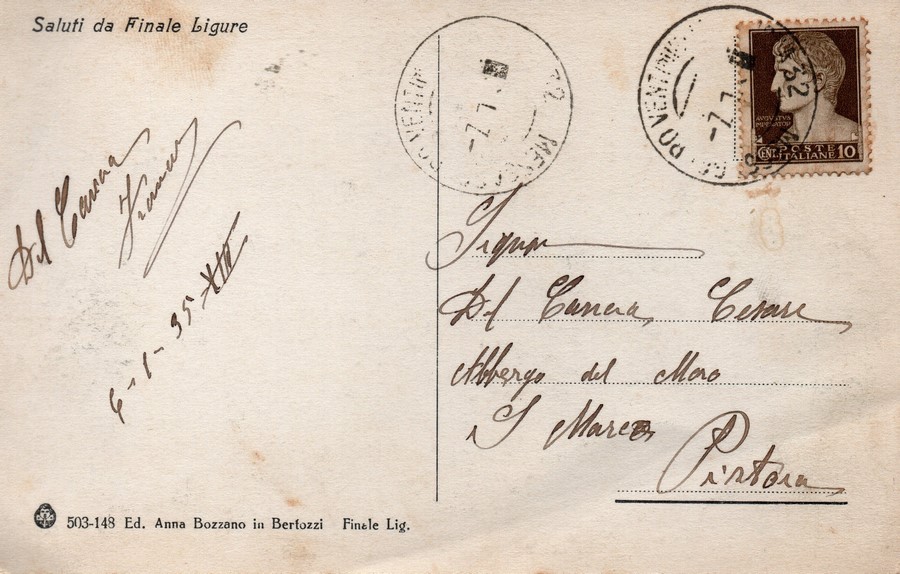 Saluti da Finale Ligure
Del Carrera
6-1-35 XIII
503-148 Ed. Anna Bozzano in Bertozzi Finale Lig.
-7.1
32
AVGVSTVS
IMPERATOR
CENT. POSTE ITALIANE 10
Signor
Del Carrera Cesare
Albergo del Moro
S Marco
Pistoia